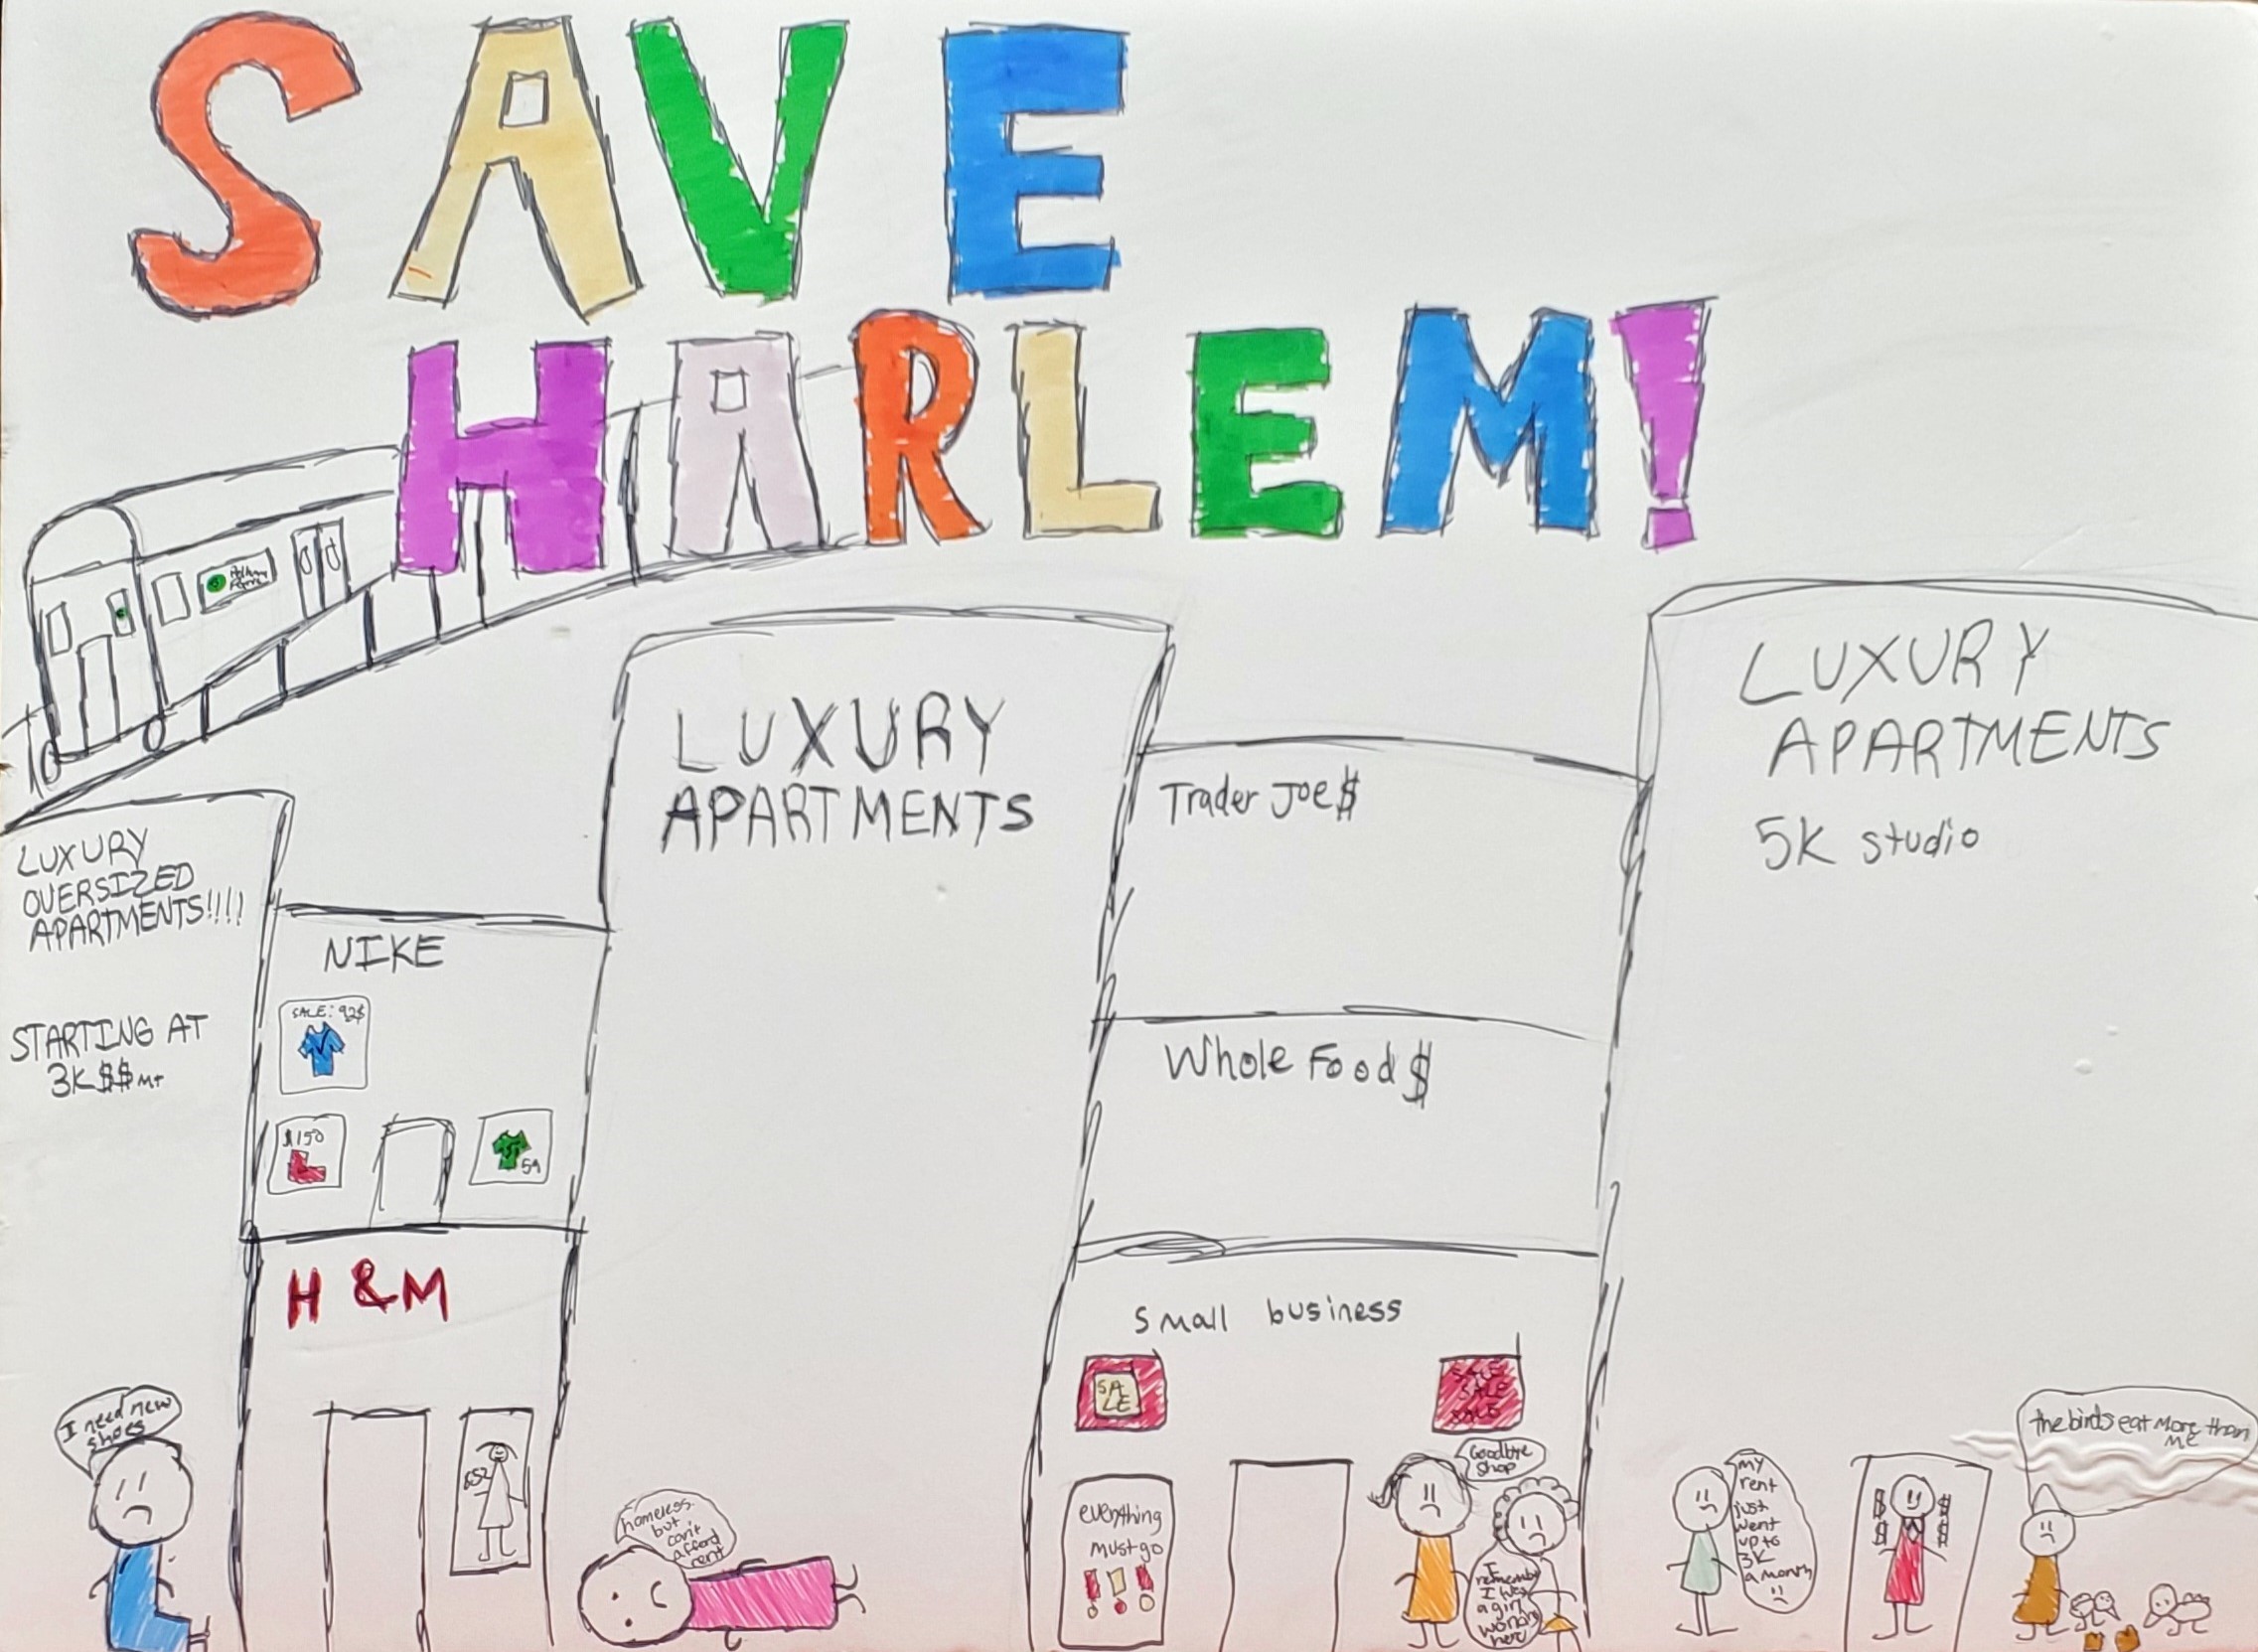 SAVE
HARLEM!
LUXURY
OVERSIZED
APARTMENTS!!!!
STARTING AT
3K $$ MT
NIKE
SALE: 92$
$150
59
H &M
$52
I need new
shoes
LUXURY
APARTMENTS
homeless
but
can't
afford
rent
Trader Joe$
Whole Food$
Small business
SA
LE
SALE
SALE
SALE
everything
must go
!!!
Goodbye
shop
I
remember
I was
a girl
here
LUXURY
APARTMENTS
5K studio
my
rent
just
went
up to
3K
a month
$
$
$
$
the birds eat more than
me